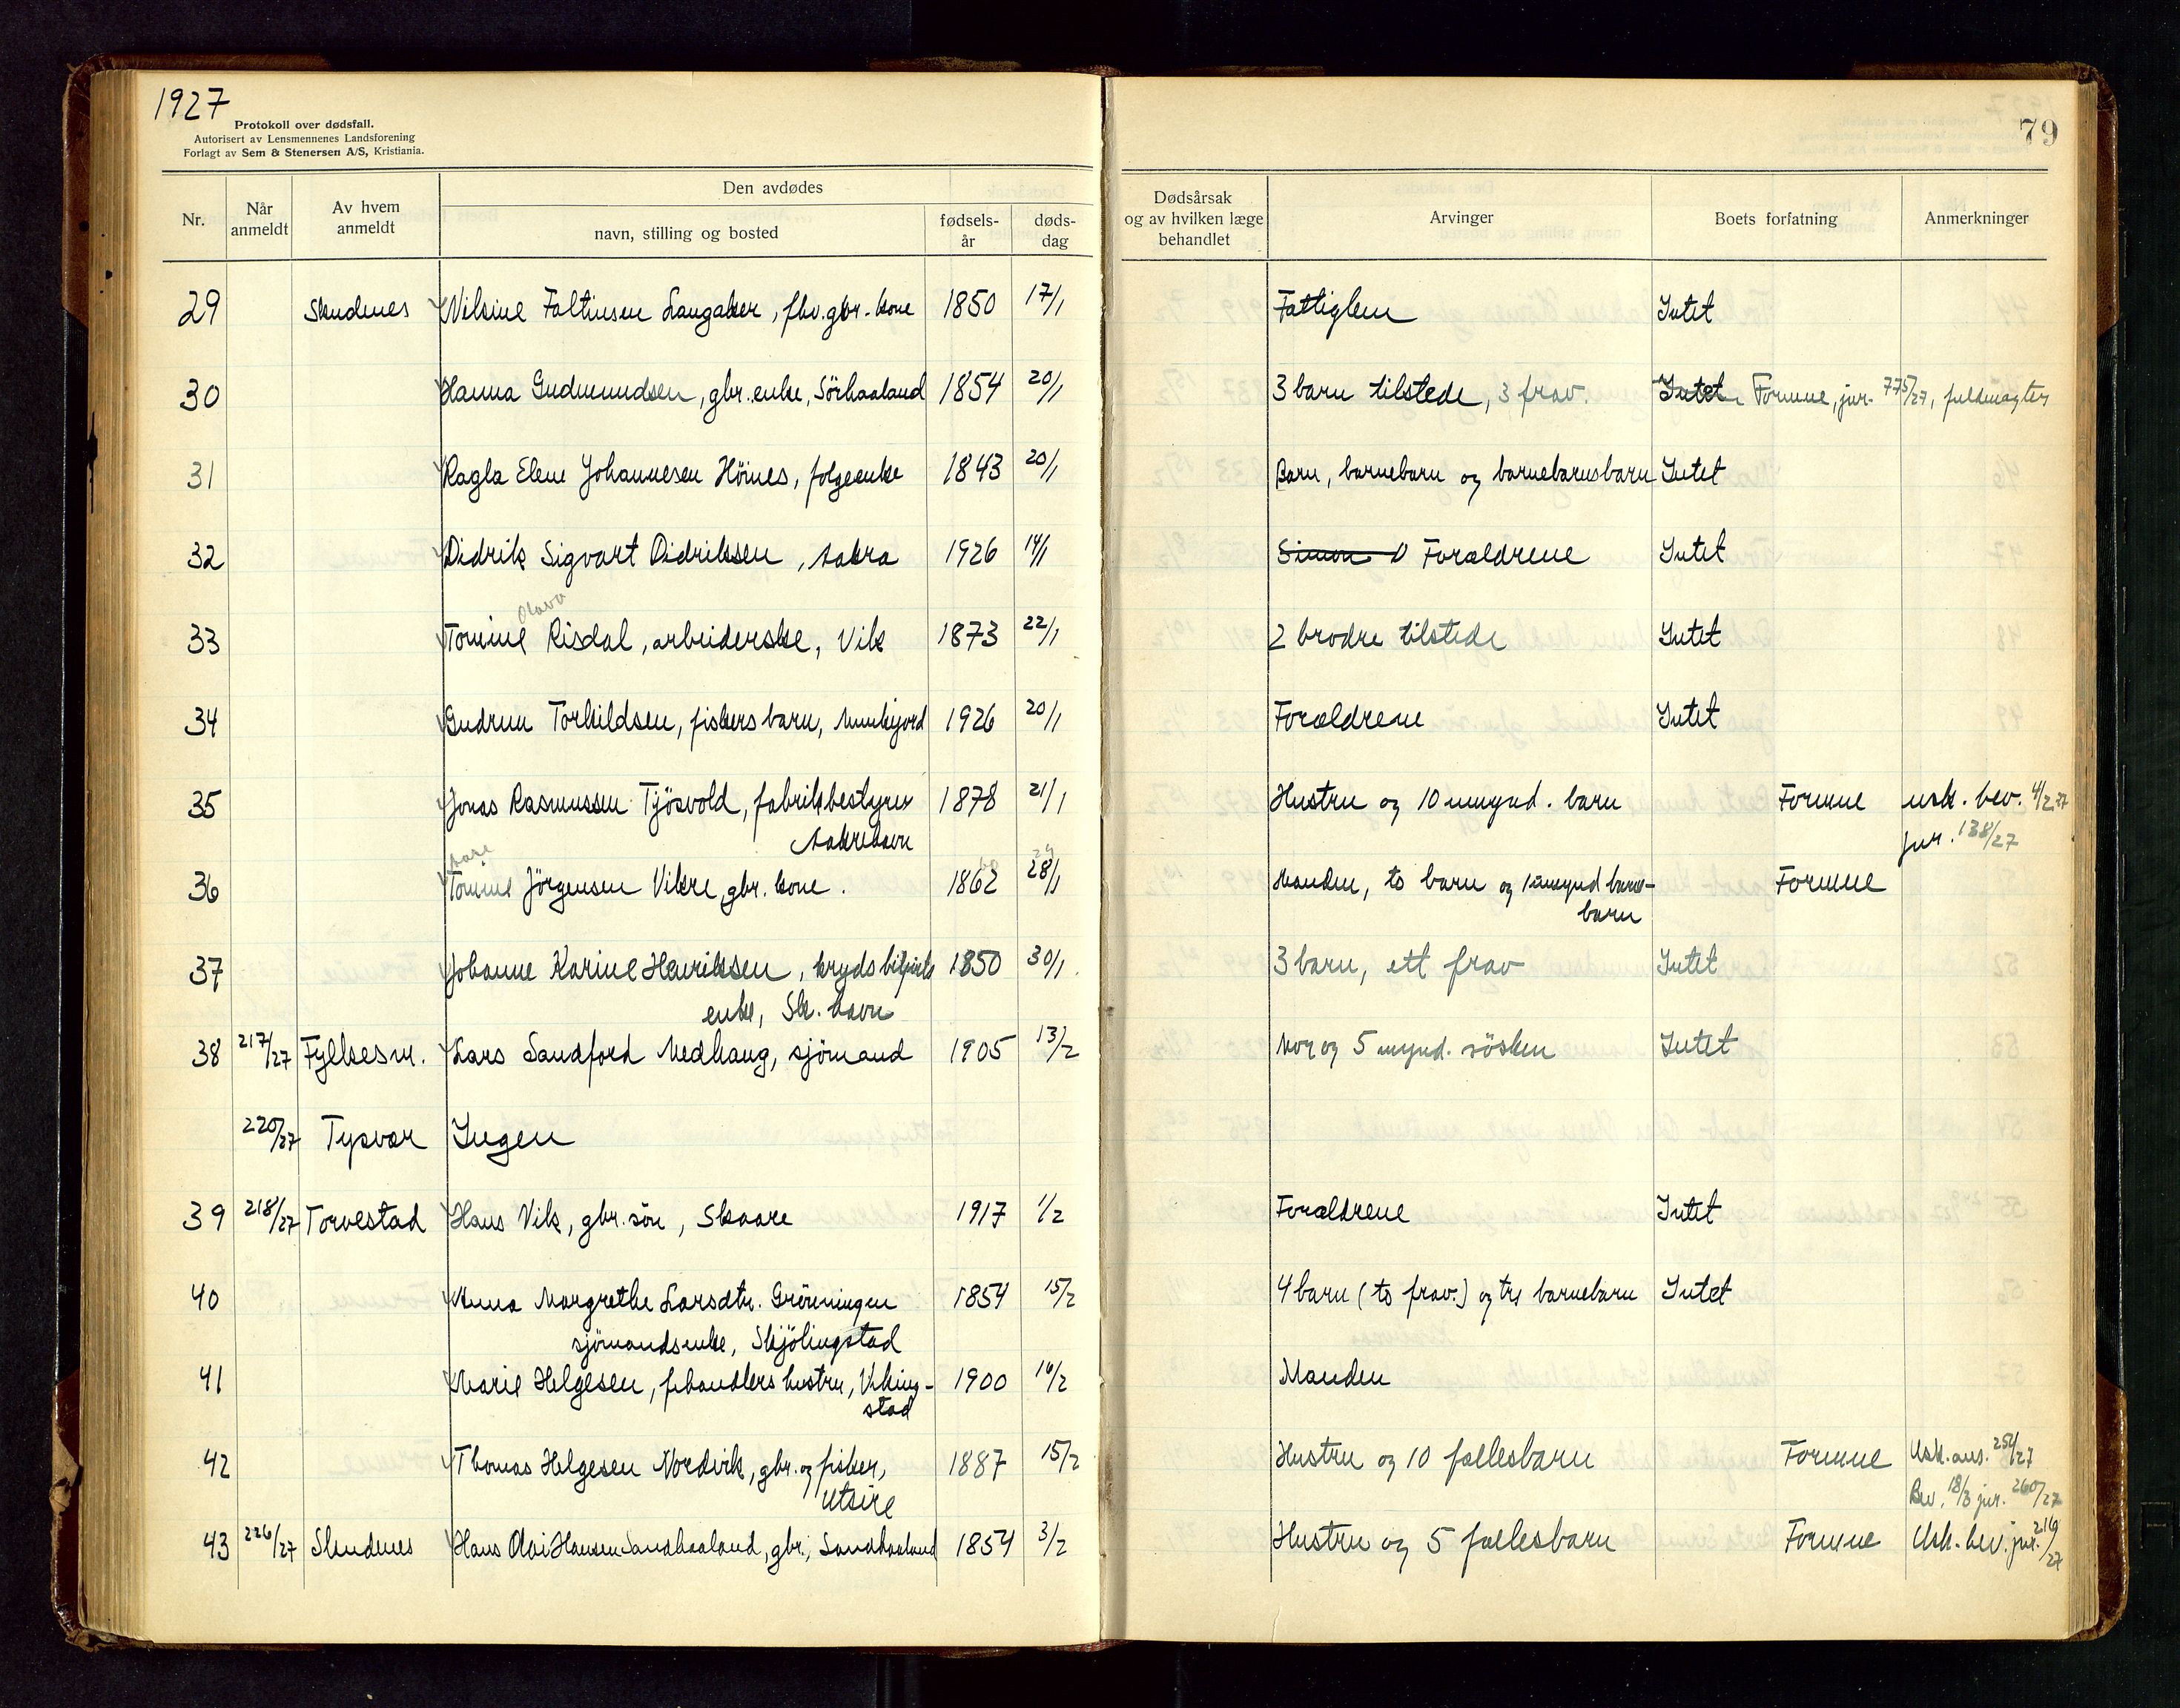 1927
Protokoll over dødsfall.
Autorisert av Lensmennenes Landsforening
Forlagt av Sem & Stenersen A/S, Kristiania.
79
Nr. Når anmeldt Av hvem anmeldt Den avdødes navn, stilling og bosted fødsels-år døds-dag Dødsårsak og av hvilken læge behandlet Arvinger Boets forfatning Anmerkninger
29 Skudenes Nilsine Faltinsen Langaker, fhv. gbr. kone 1850 17/1 Fattiglem Intet
30 Hanna Gudmundsen, gbr. enke, Sörhaaland 1854 20/1 3 barn tilstede, 3 frav. Intet Formue, jur. 775/27, fuldmagter
31 Ragla Elene Johannesen Höines, folgeenke 1843 20/1 Barn, barnebarn og barnebarnsbarn Intet
32 Didrik Sigvart Didriksen, Aakra 1926 14/1 Simon Forældrene Intet
Olava
33 Tomine Risdal, arbeiderske, Vik 1873 22/1 2 brødre tilstede Intet
34 Gudrun Torkildsen, fiskers barn, Munkejord 1926 20/1 Forældrene Intet
35 Jonas Rasmussen Tjösvold, fabrikbestyrer 1878 21/1 Hustru og 10 umynd. barn Formue usk. bev. 4/2 27
Aakrehavn jur. 138/27
36 Tomine Jörgensen Vikre, gbr. kone. 1862 28/1 Manden, to barn og 1 umynd barne- Formue
barn
37 Johanne Karine Henriksen, krydsbetjents 1850 30/1 3 barn, ett frav Intet
enke, Sk. havn
38 217/27 Fylkesm. Lars Sandford Medhaug, sjömand 1905 13/2 Mor og 5 mynd. sösken Intet
220/27 Tysvær Ingen
39 218/27 Torvestad Hans Vik, gbr. sön, Skaare 1917 1/2 Forældrene Intet
40 Anna Margrethe Larsdtr. Grönningen 1854 15/2 4 barn (to frav.) og tre barnebarn Intet
sjömandsenke, Skjölingstad
41 Marie Helgesen, fehandlers hustru, Viking- 1900 16/2 Manden
stad
42 Thomas Helgesen Nordvik, gbr. og fisker, 1887 15/2 Hustru og 10 fællesbarn Formue Usk. ans. 254/27
Utsire Bev. 18/3 jur. 260/27
43 226/27 Skudenes Hans Olai Hansen Sandhaaland, gbr., Sandhaaland 1854 3/2 Hustru og 5 fællesbarn Formue Usk. bev. jur. 216/27